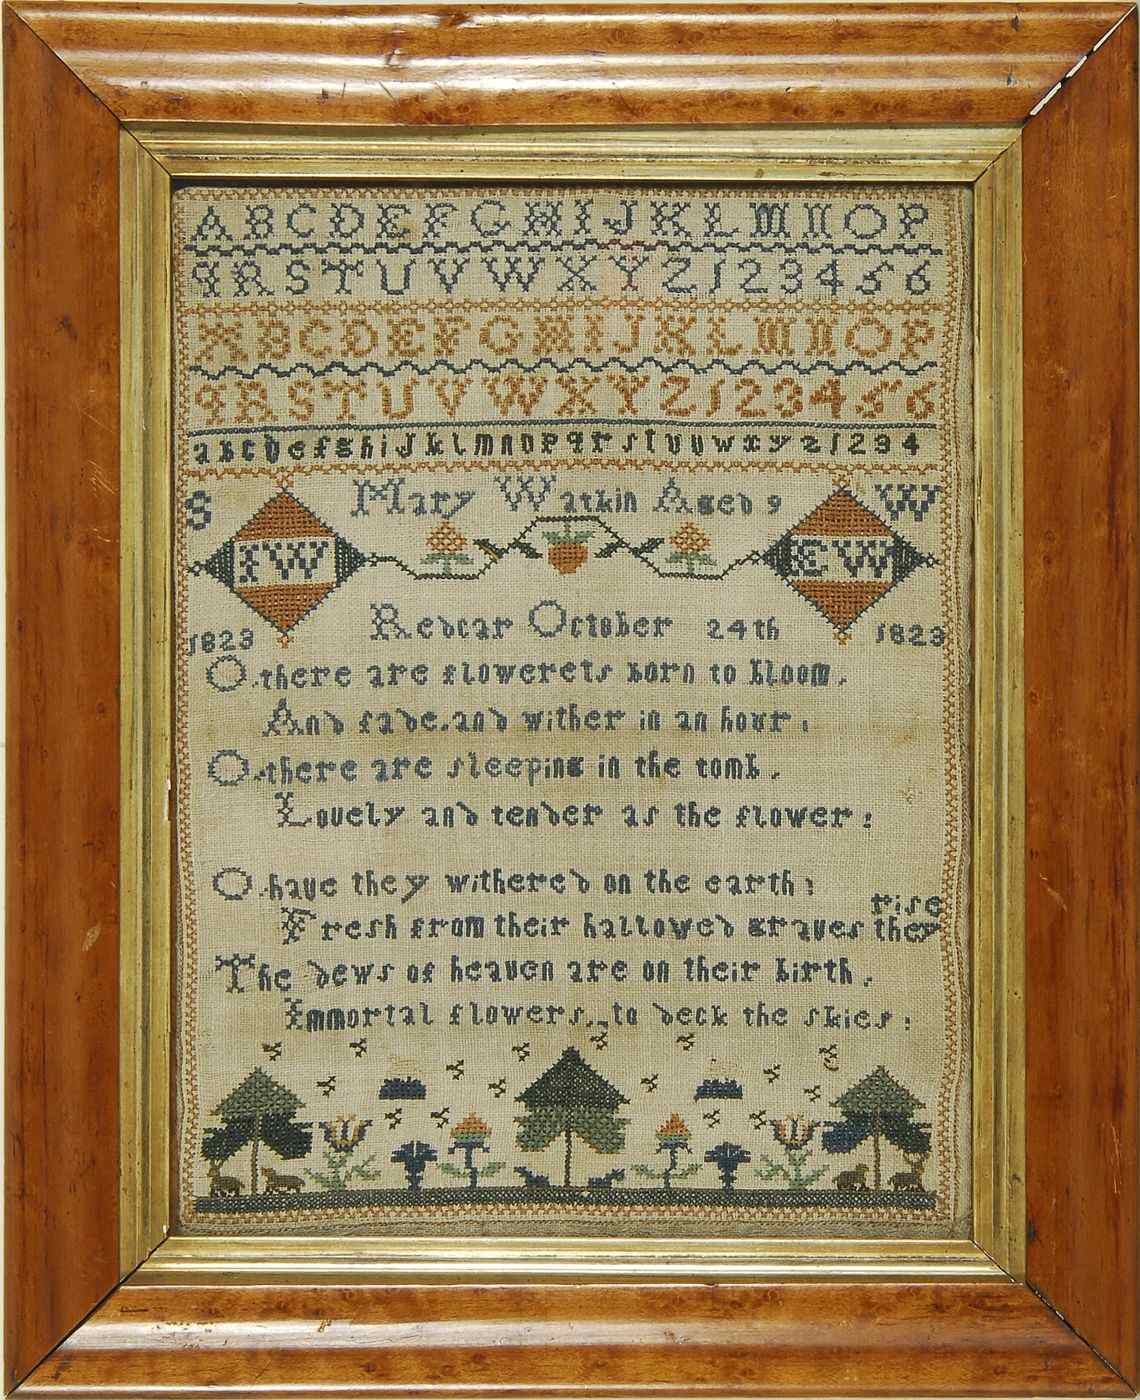 A B C D E F G H I J K L M N O P
q R S T U V W X Y Z 1 2 3 4 5 6
A B C D E F G H I J K L M N O P
q R S T U V W X Y Z 1 2 3 4 5 6
a b c d e f g h i j k l m n o p q r s t u v w x y z 1 2 3 4
S Mary Watkin Aged 9 W
IW EW
Redcar October 24th
1823 1823
O there are flowerets born to bloom.
And fade.and wither in an hour:
O there are sleeping in the tomb.
Lovely and tender as the flower:
O have they withered on the earth:
rise
Fresh from their hallowed graves they
The dews of heaven are on their birth.
Immortal flowers, to deck the skies: